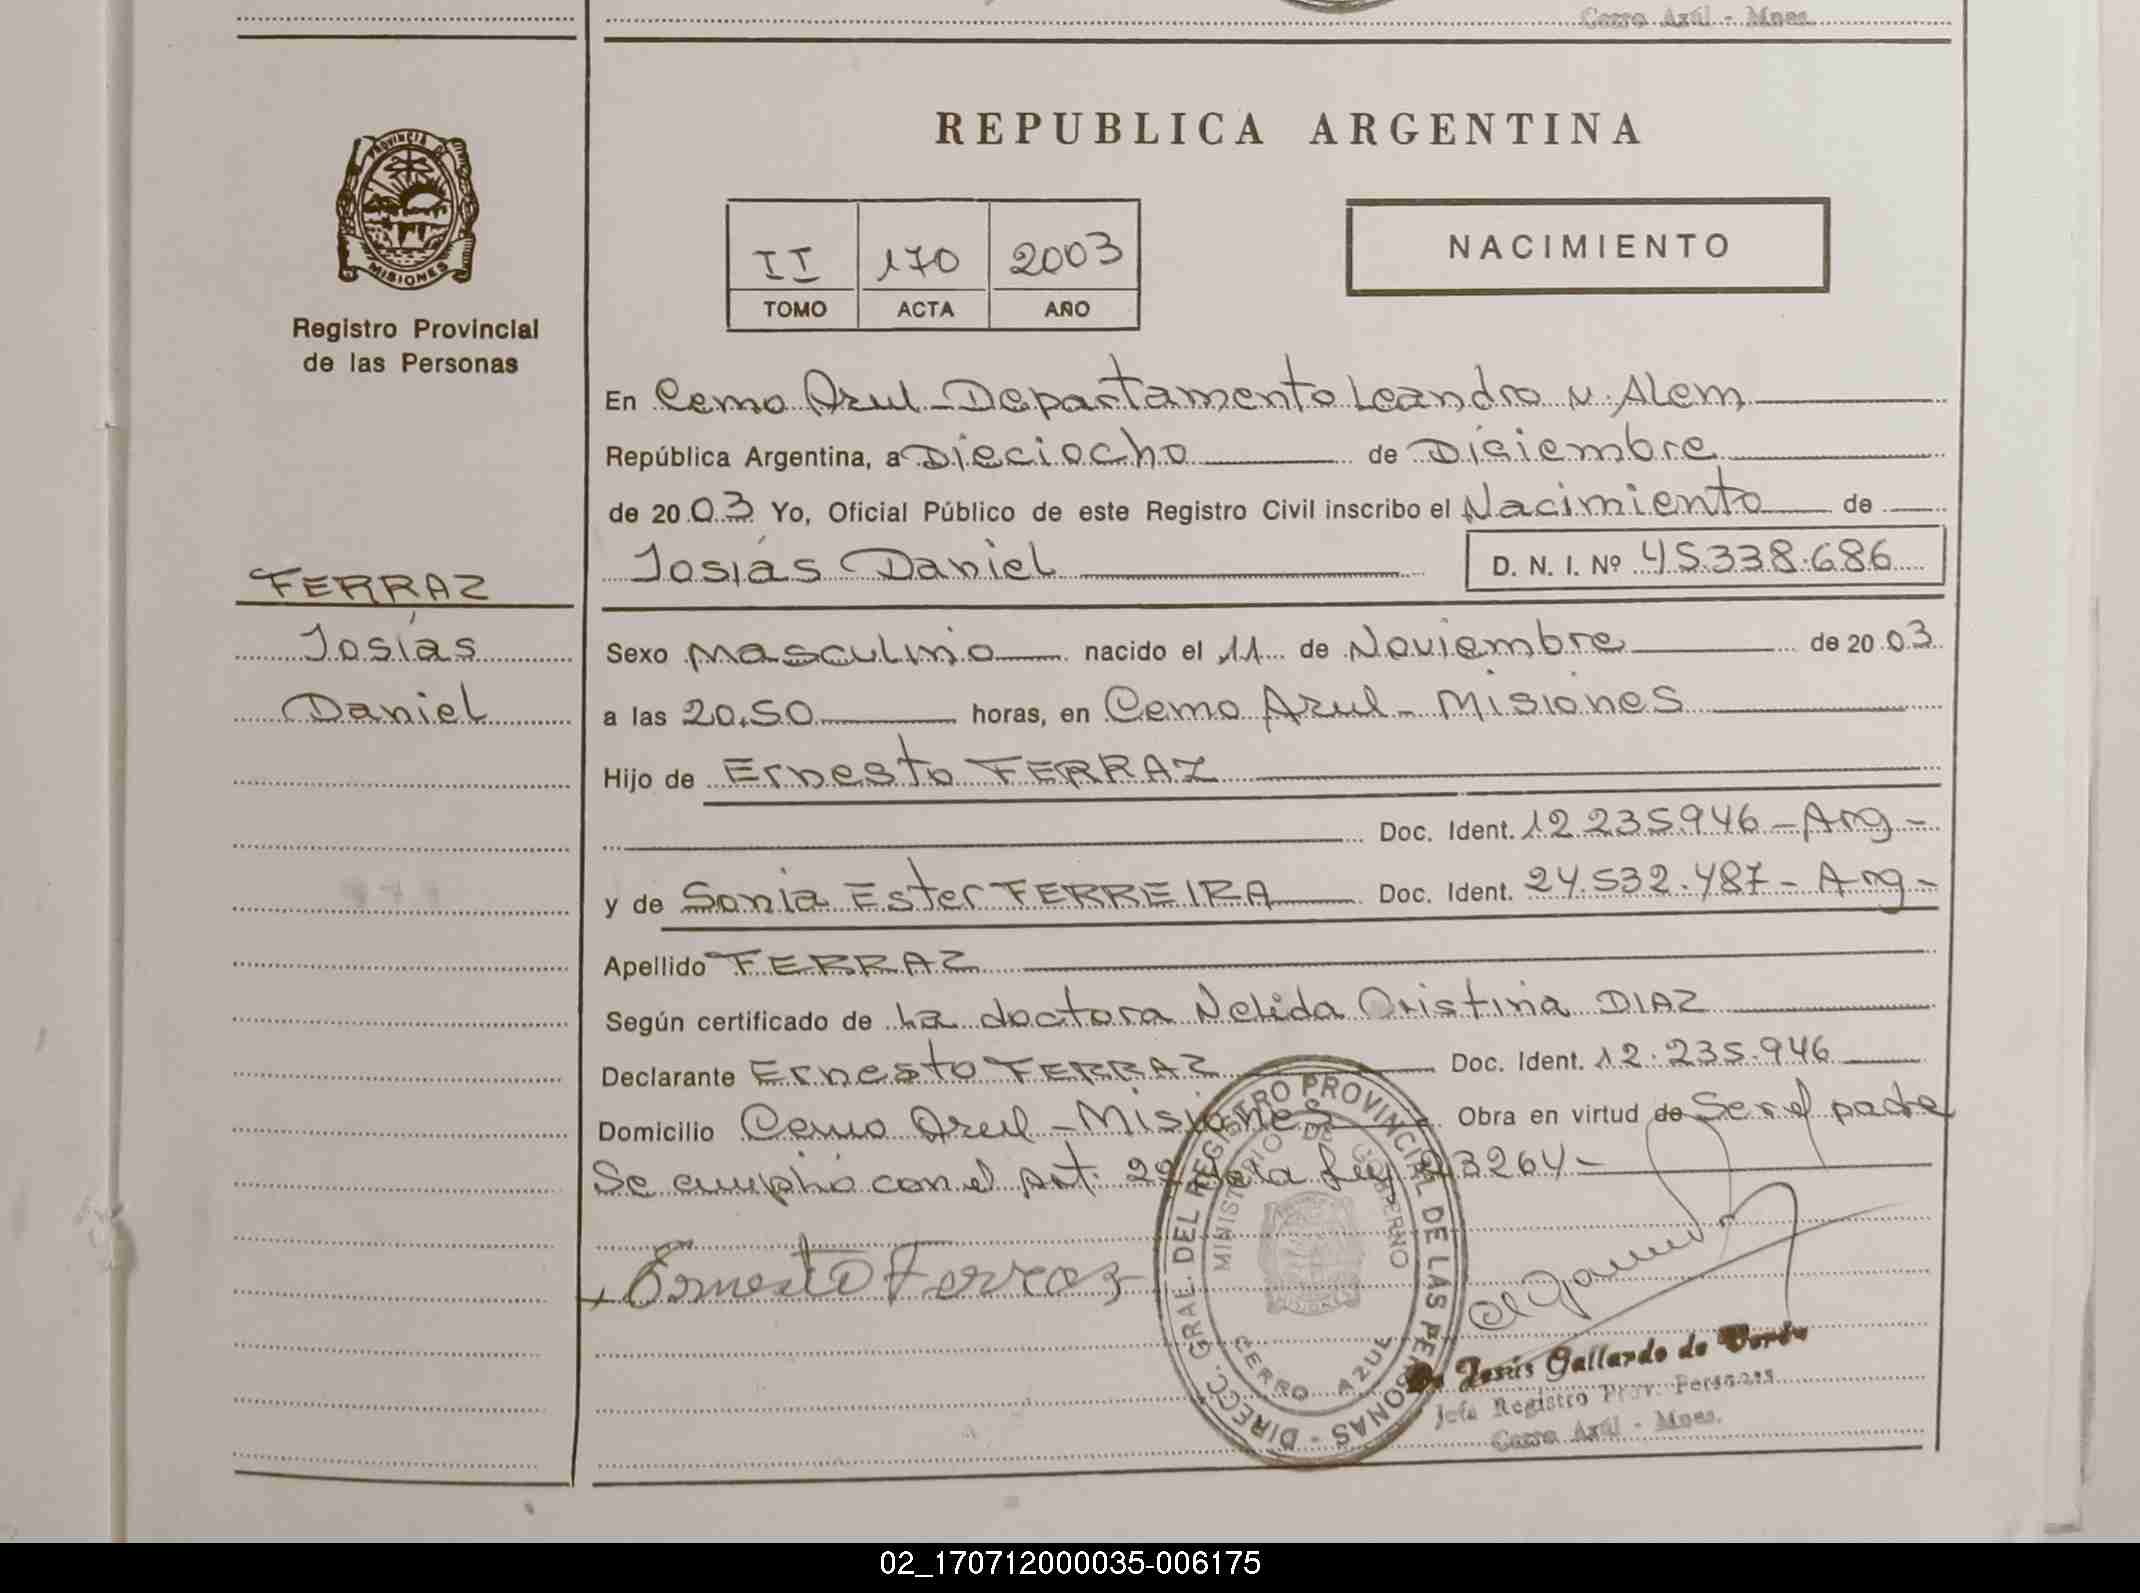 Cerro Azúl - Mnes.
PROVINCIA DE
MISIONES
Registro Provincial
de las Personas
FERRAZ
Josías
Daniel
REPUBLICA ARGENTINA
II 170 2003
TOMO ACTA AÑO
NACIMIENTO
En Cerro Azul - Departamento Leandro N. Alem
República Argentina, a Dieciocho de Diciembre
de 2003 Yo, Oficial Público de este Registro Civil inscribo el Nacimiento de
Josías Daniel D. N. I. Nº 45.338.686
Sexo Masculino nacido el 11 de Noviembre de 2003
a las 20.50 horas, en Cerro Azul - Misiones
Hijo de Ernesto FERRAZ
Doc. Ident. 12.235.946 - Arg -
y de Sonia Ester FERREIRA Doc. Ident. 24.532.487 - Arg -
Apellido FERRAZ
Según certificado de La doctora Nelida Cristina DIAZ
Declarante Ernesto FERRAZ Doc. Ident. 12.235.946
Domicilio Cerro Azul - Misiones Obra en virtud de Ser el padre
Se cumplió con el Art. 29 de la Ley 23264 -
Ernesto Ferraz
DIRECC. GRAL. DEL REGISTRO PROVINCIAL DE LAS PERSONAS -
MINISTERIO DE GOBIERNO
CERRO AZUL
de Jesús Gallardo de
Jefa Registro Prov. Personas
Cerro Azúl - Mnes.
02_170712000035-006175